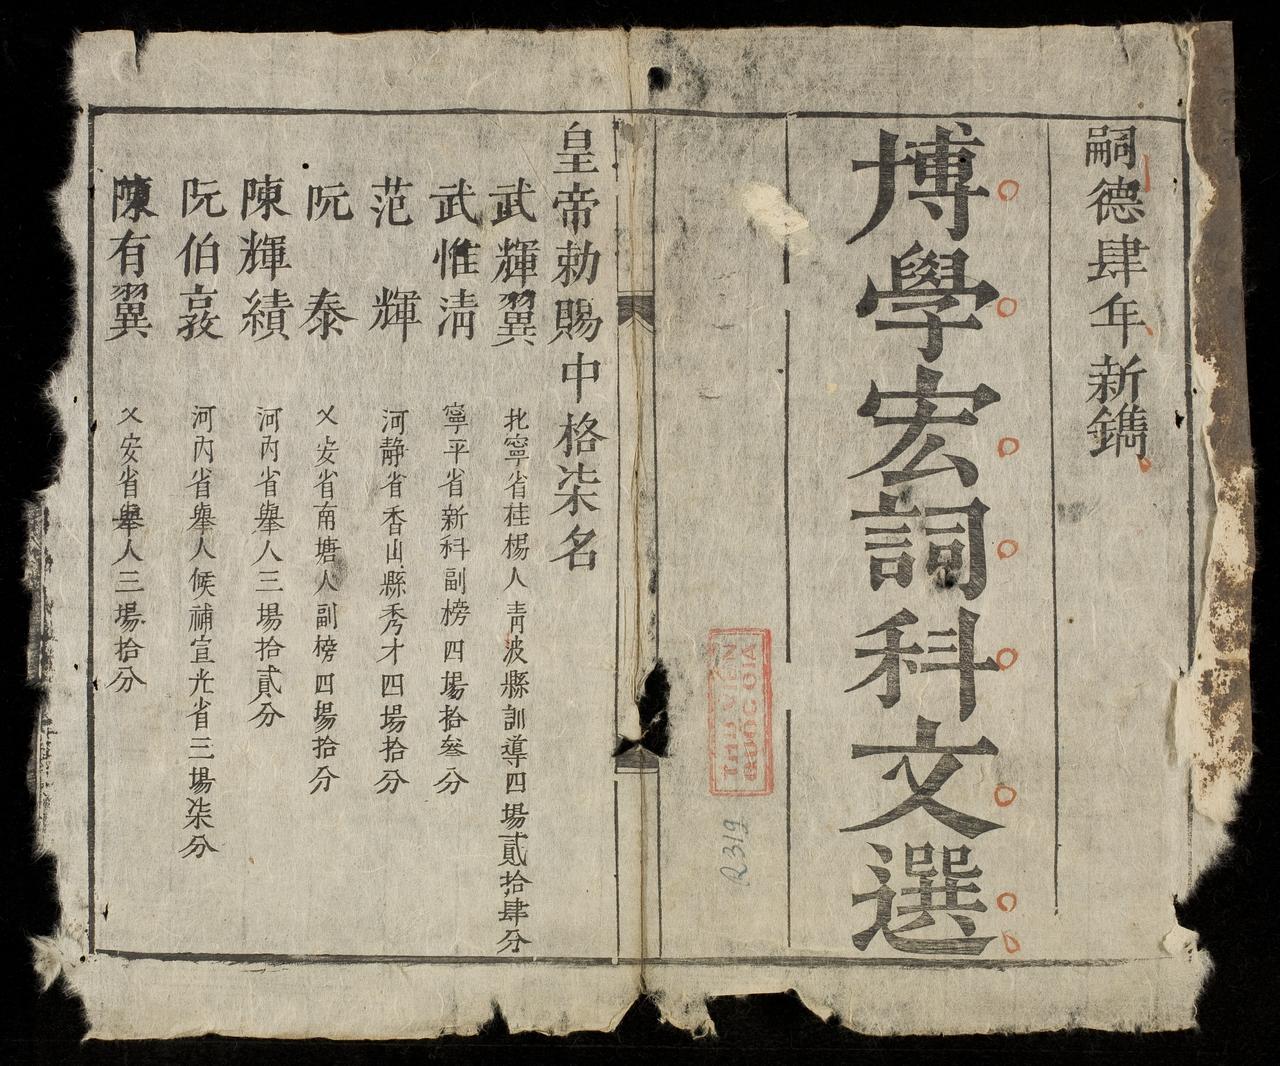 嗣德肆年新鐫
博學宏詞科文選
THƯ VIỆN
QUỐC GIA
R319
皇帝勅賜中格柒名
武輝翼 北寧省桂楊人青波縣訓導四場貳拾肆分
武惟清 寧平省新科副榜四場拾叄分
范輝 河静省香山縣秀才四場拾分
阮泰 乂安省南塘人副榜四場拾分
陳輝績 河內省舉人三場拾貳分
阮伯敦 河內省舉人候補宣光省三場柒分
陳有翼 乂安省舉人三場拾分